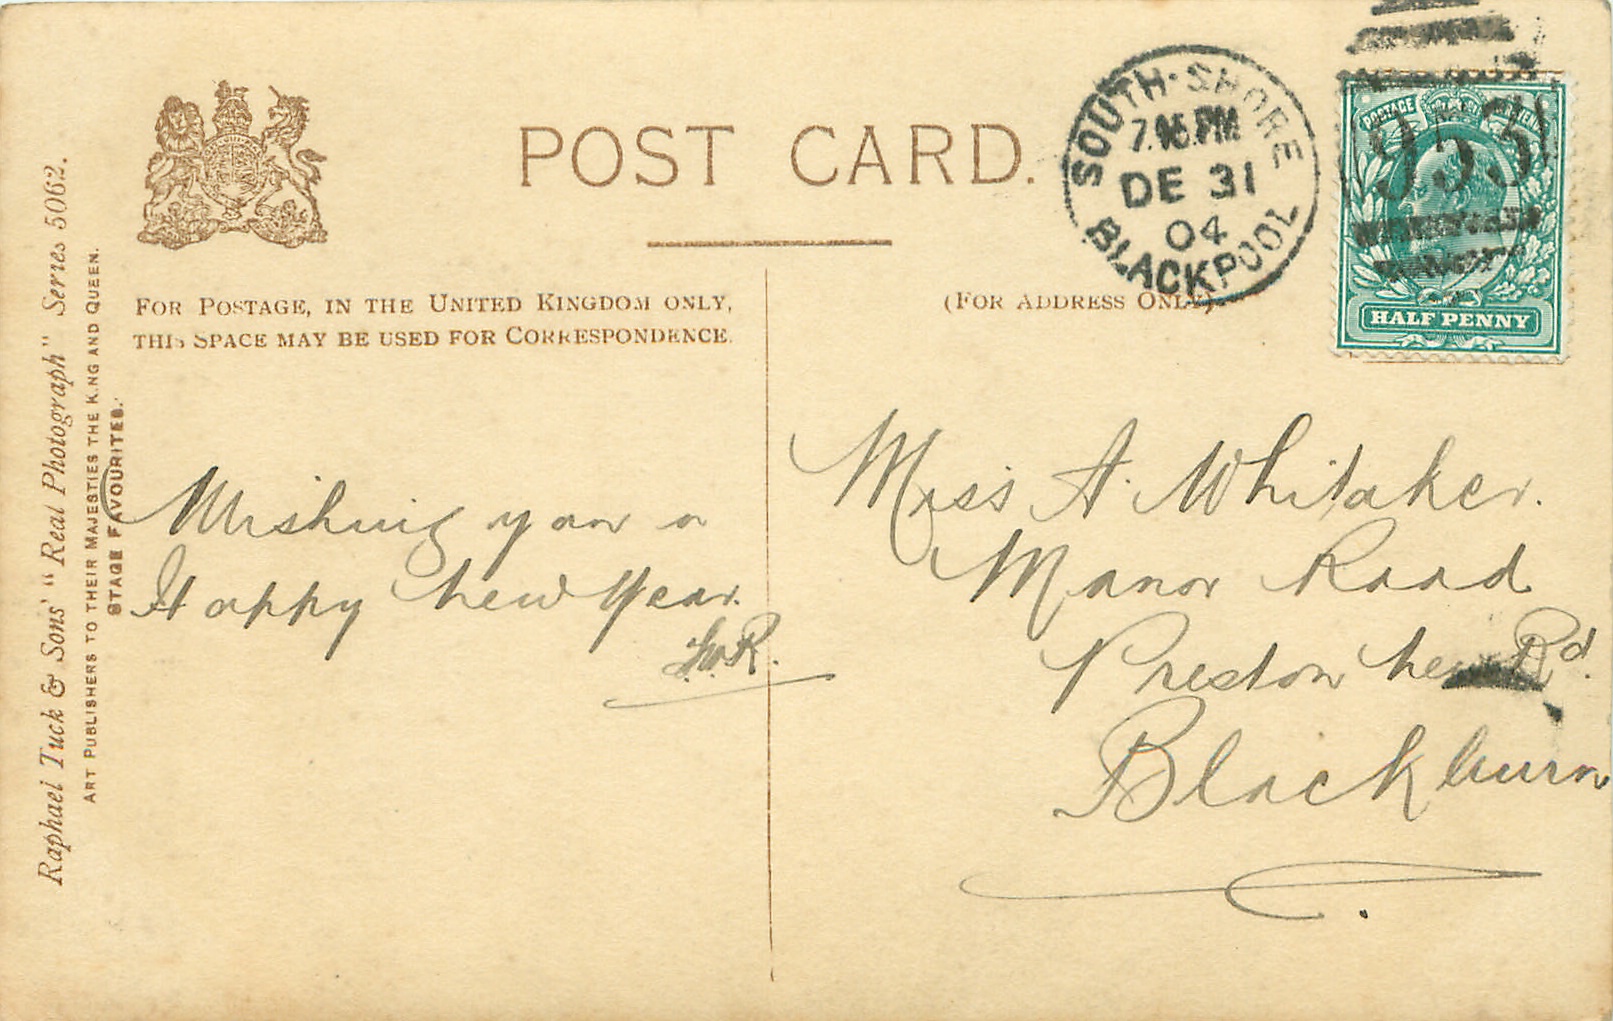 POST CARD.
SOUTH·SHORE
7.15.PM
DE 31
04
BLACKPOOL
POSTAGE
953
HALF PENNY
FOR POSTAGE, IN THE UNITED KINGDOM ONLY,
THIS SPACE MAY BE USED FOR CORRESPONDENCE.
(FOR ADDRESS ONLY)
Raphael Tuck & Sons' "Real Photograph" Series 5062.
ART PUBLISHERS TO THEIR MAJESTIES THE KING AND QUEEN.
STAGE FAVOURITES.
Wishing you a
Happy New Year.
Miss A. Whitaker.
Manor Road
Preston New Rd.
Blackburn